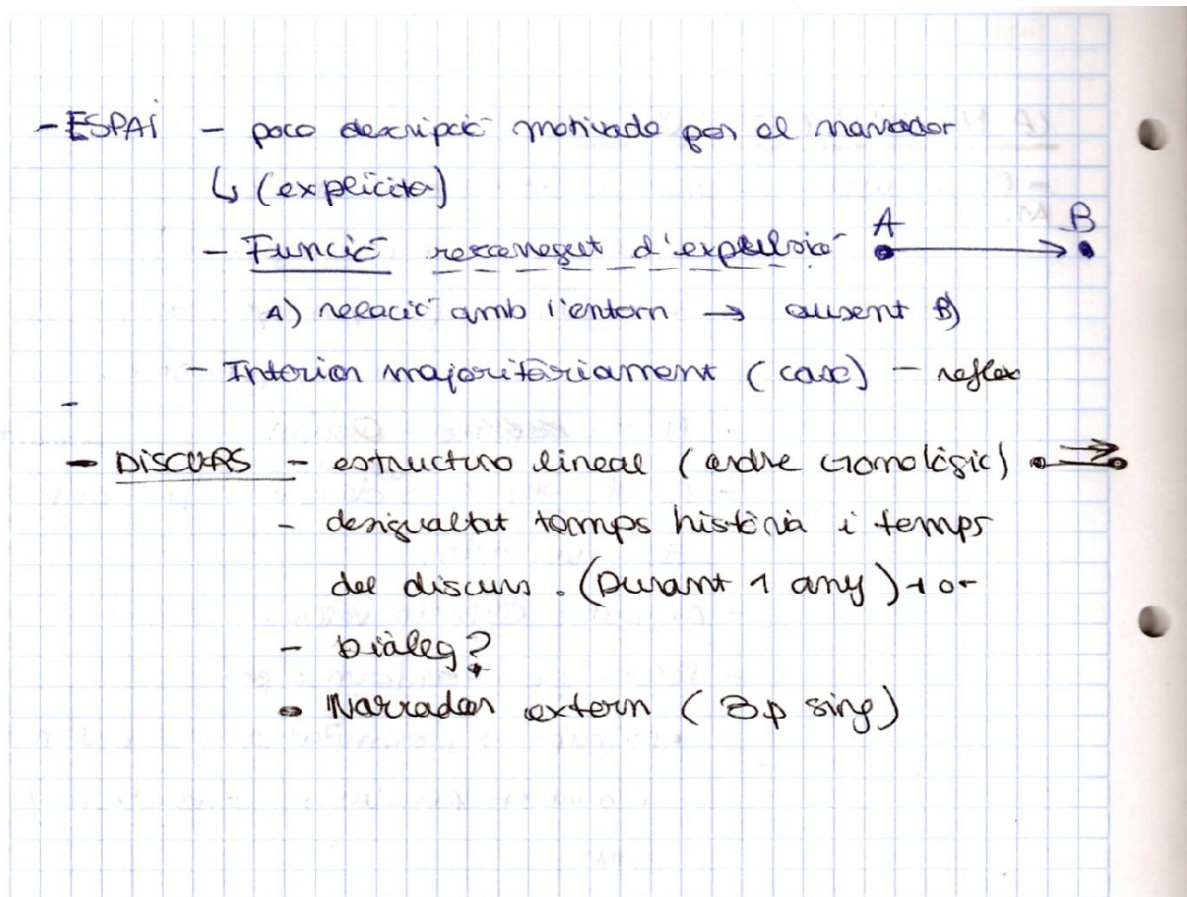 - ESPAI - poca descripció motivada per el narrador
↳ (explícita)
- Funció rerca d'expulsió A → B
A) relació amb l'entorn → ausent B)
- Interior majoritàriament (casa) - reflex
-
- DISCURS - estructura lineal (ordre cronològic)
- desigualtat temps història i temps
del discurs. (Durant 1 any) + o -
- Diàleg?
• Narrador extern (3p sing)